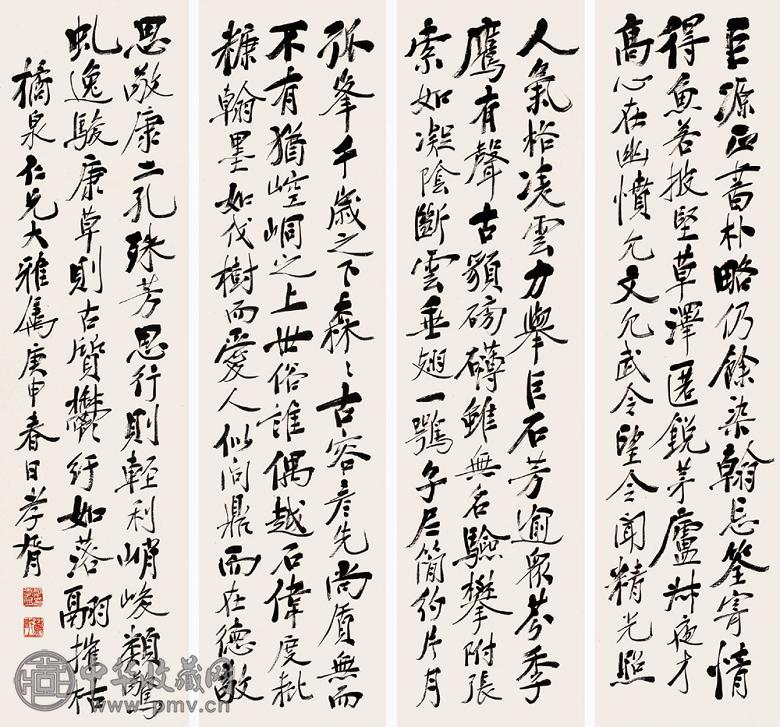 巨源正蓄朴略仍餘染翰忘筌寄情
得魚若披堅草澤匿銳茅廬叔夜才
高心在幽憤允文允武令望令聞精光照
人氣格凌雲力舉巨石芳逾眾芬季
鷹有聲古貌磅礴雖無名驗攀附張
索如凝陰斷雲垂翅一鶚子尼簡約片月
孤峯千歲之下森〻古容彥先尚質無而
不有猶崆峒之上世俗誰偶越石偉度秕
糠翰墨如伐樹而愛人似問鼎而在德敬
思敬康二孔殊芳思行則輕利峭峻類驚
虬逸駿康草則古質鬱紆如落翮摧枯
橘泉仁兄大雅屬庚申春日孝胥
中华收藏网
www.pmv.cn